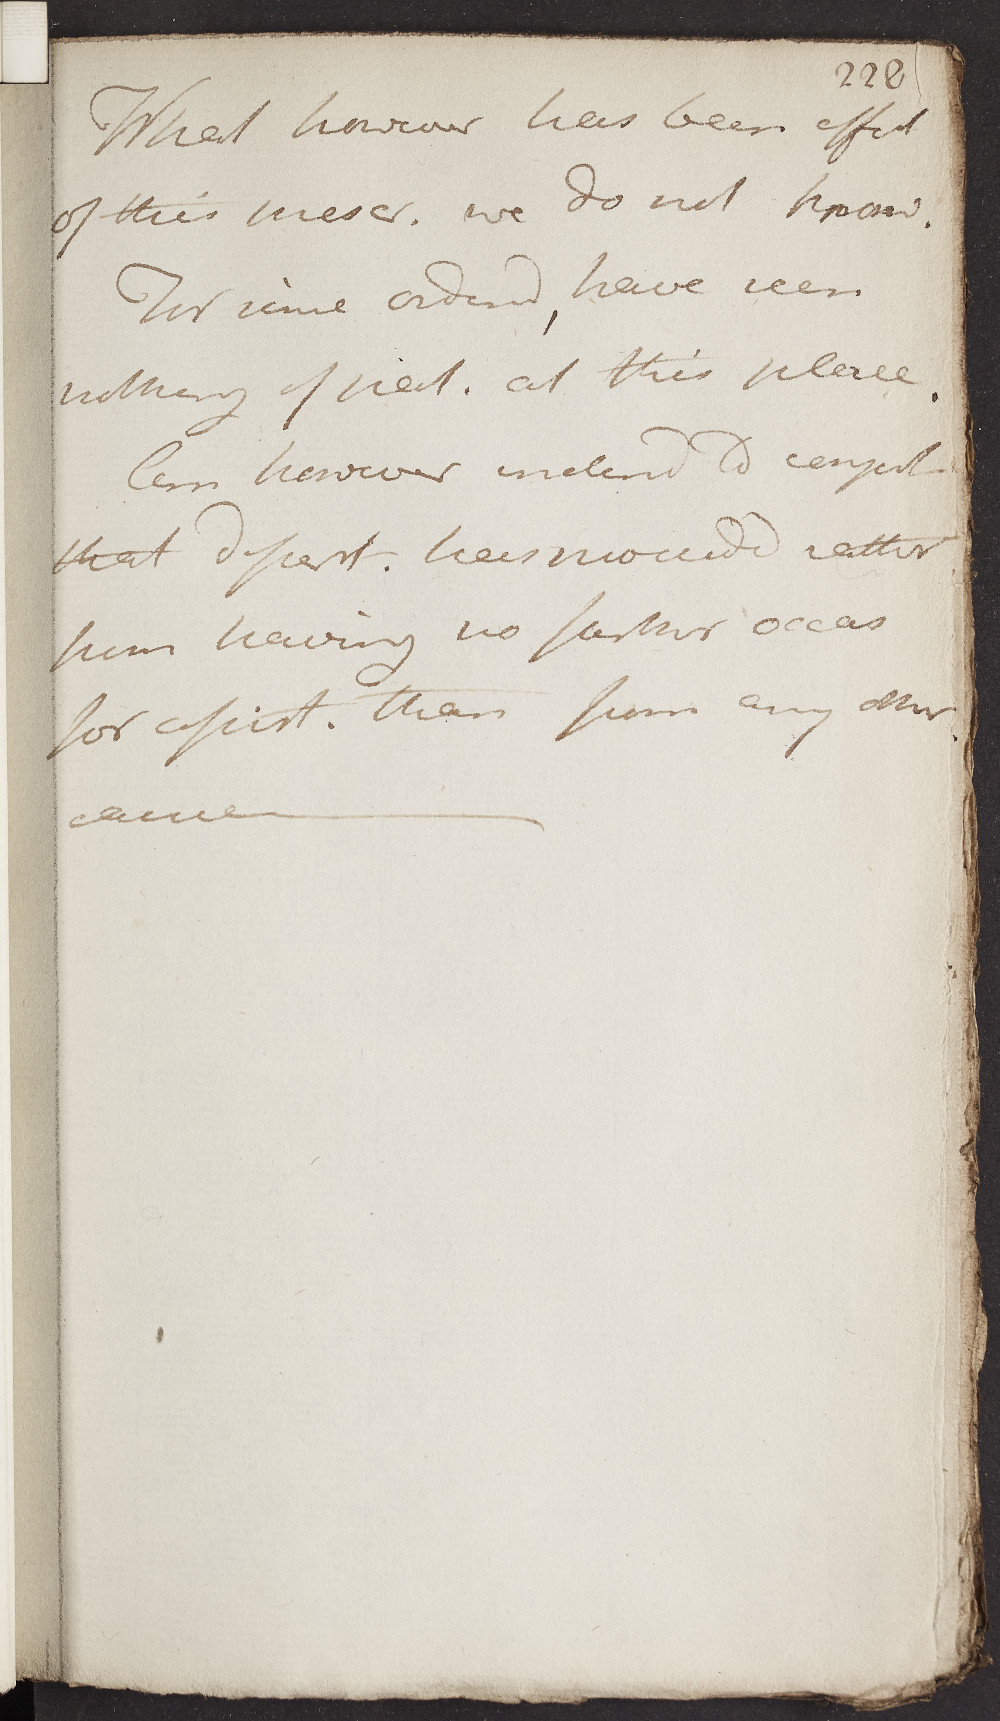 228
What however has been effect
of this measr. we do not know.
For since ordered, have seen
nothing of pat. at this place.
Can however indeed to
that depart. has rather
from having no further occas
for assist. than from any other
cause